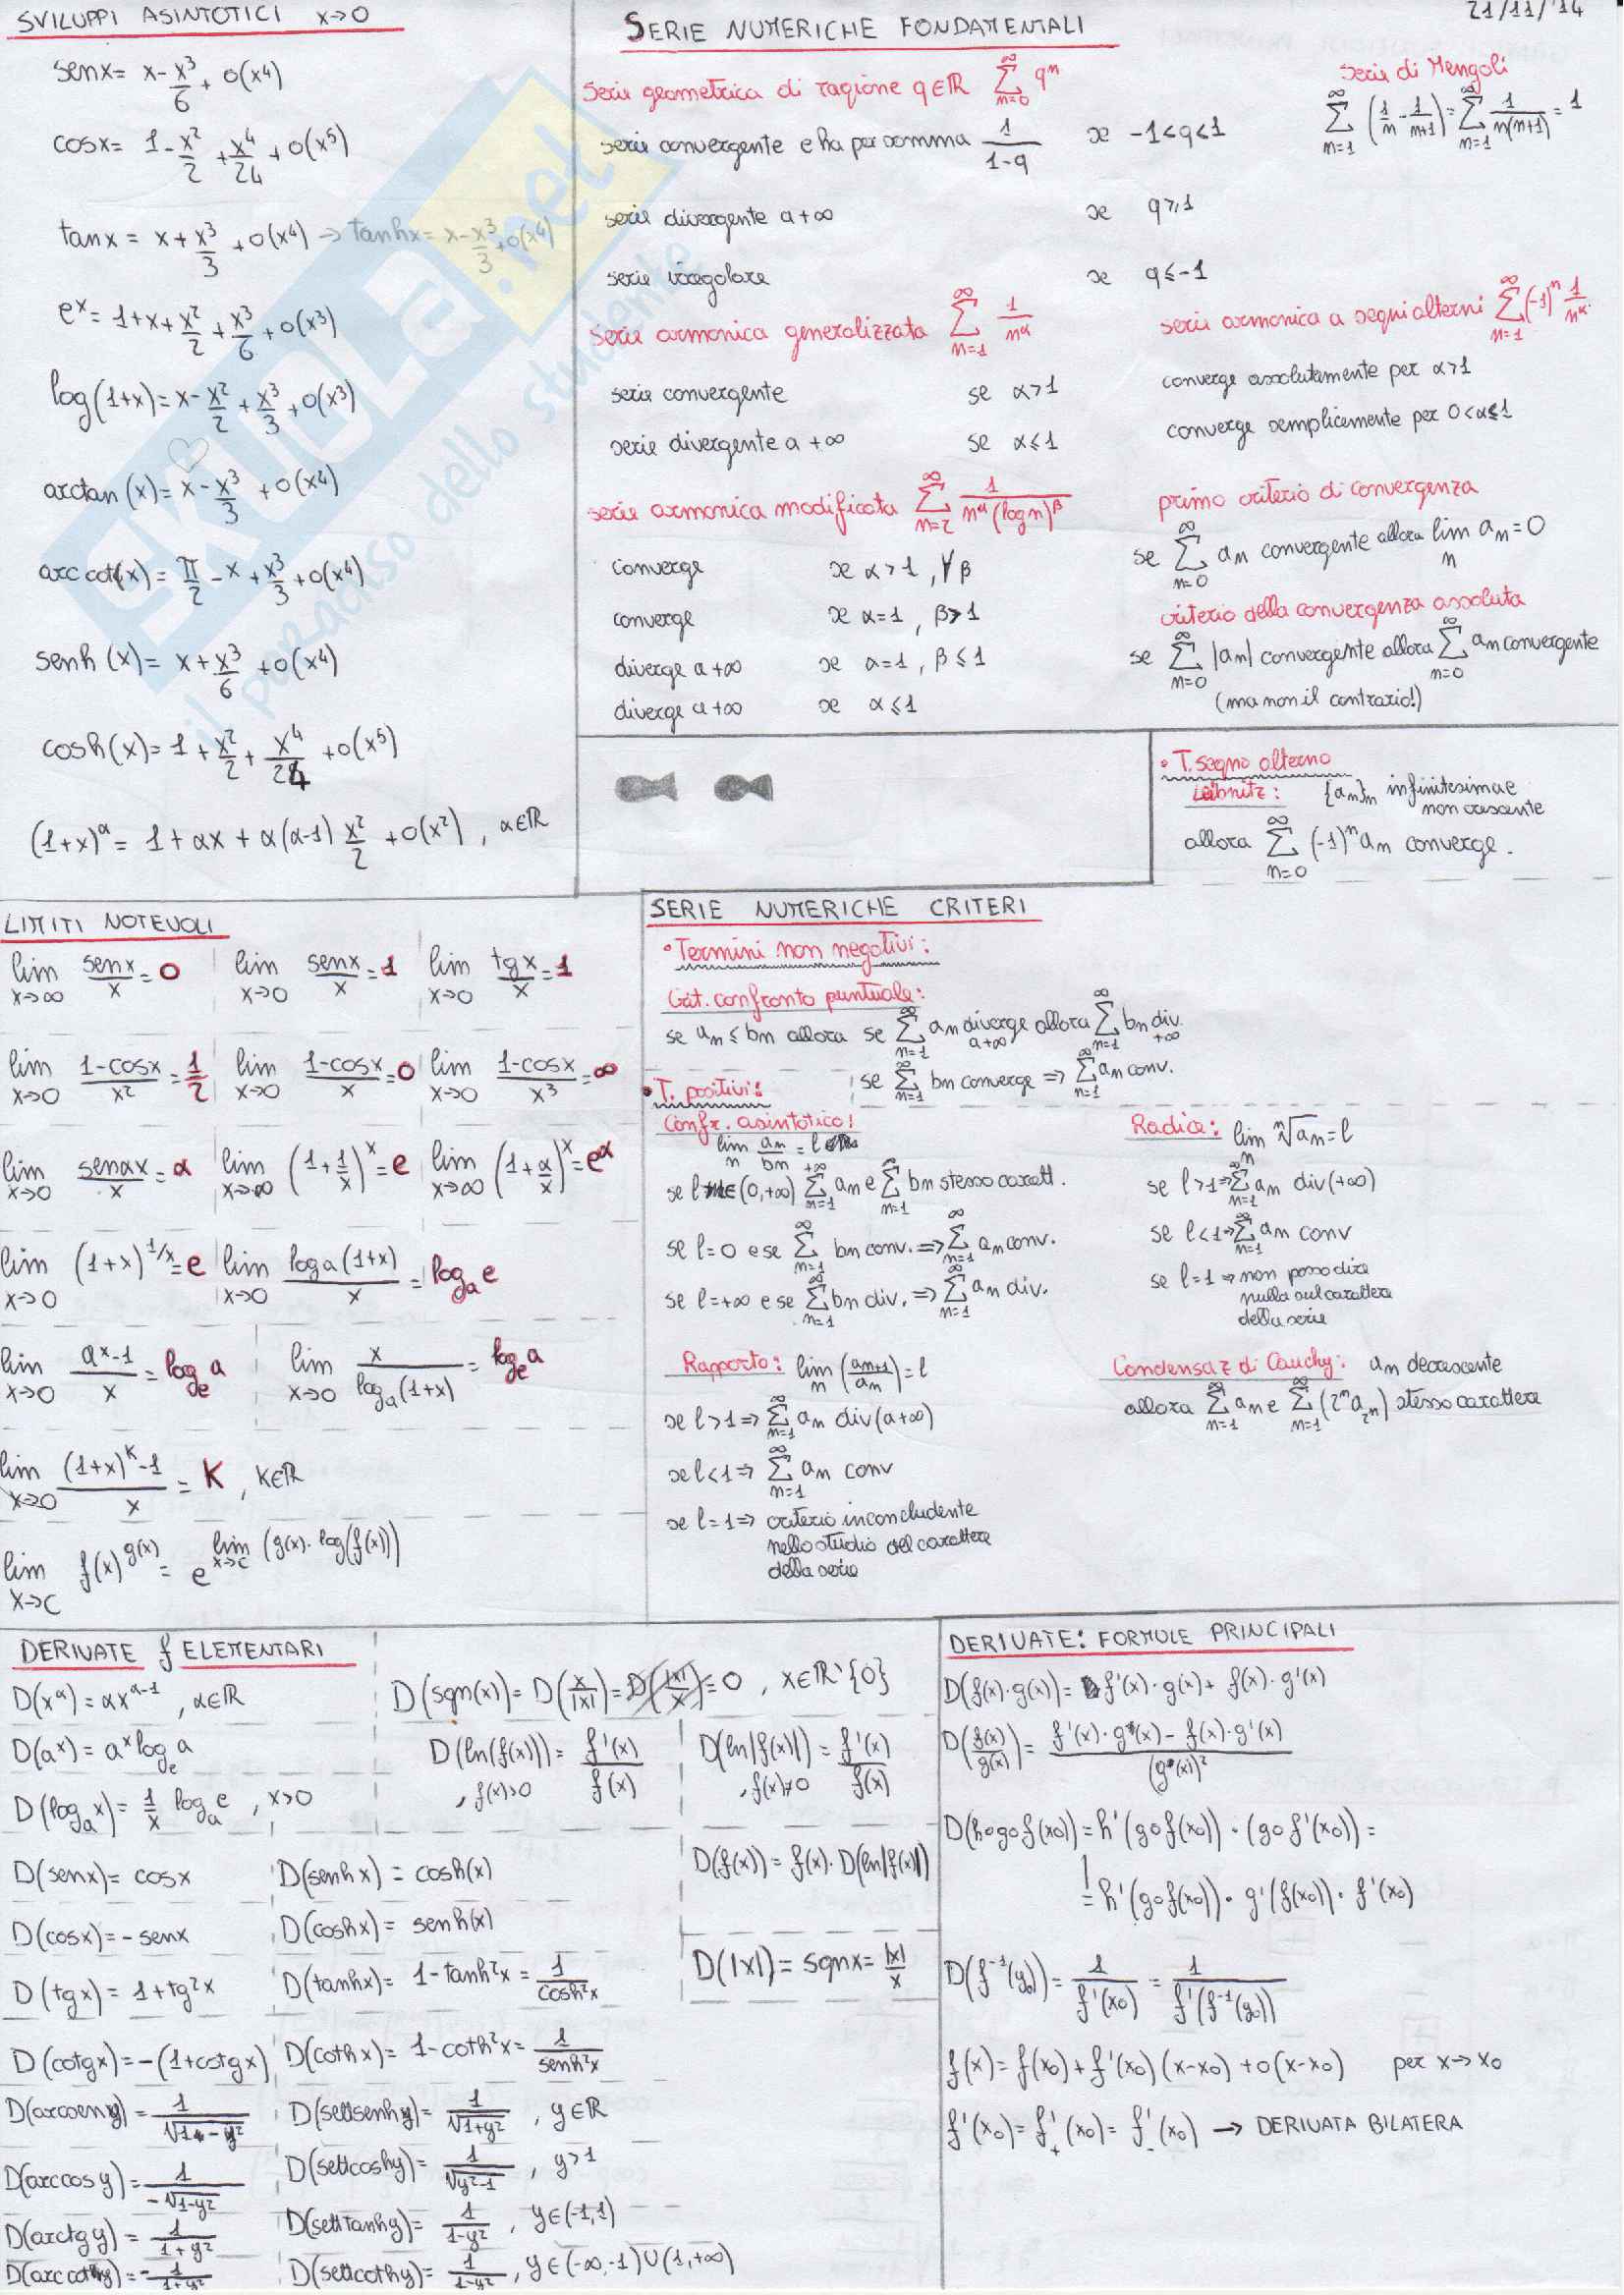 SVILUPPI ASINTOTICI x→0
senx = x - x³/6 + o(x⁴)
cosx = 1 - x²/2 + x⁴/24 + o(x⁵)
tanx = x + x³/3 + o(x⁴) → tanhx = x - x³/3 + o(x⁴)
eˣ = 1+x+x²/2 + x³/6 + o(x³)
log(1+x) = x - x²/2 + x³/3 + o(x³)
arctan(x) = x - x³/3 + o(x⁴)
arccot(x) = π/2 - x + x³/3 + o(x⁴)
senh(x) = x + x³/6 + o(x⁴)
cosh(x) = 1 + x²/2 + x⁴/24 + o(x⁵)
(1+x)^α = 1 + αx + α(α-1) x²/2 + o(x²), α∈ℝ
SKUOLA.net
il paradiso dello studente
21/11/'14
SERIE NUMERICHE FONDAMENTALI
serie geometrica di ragione q∈ℝ ∑_{n=0}^∞ qⁿ
serie convergente e ha per somma 1/(1-q) se -1<q<1
serie divergente a +∞ se q≥1
serie irregolare se q≤-1
Serie di Mengoli
∑_{n=1}^∞ (1/n - 1/(n+1)) = ∑_{n=1}^∞ 1/(n(n+1)) = 1
serie armonica generalizzata ∑_{n=1}^∞ 1/n^α
serie convergente se α>1
serie divergente a +∞ se α≤1
serie armonica a segni alterni ∑_{n=1}^∞ (-1)ⁿ 1/n^α
converge assolutamente per α>1
converge semplicemente per 0<α≤1
serie armonica modificata ∑_{n=2}^∞ 1/(n^α (log n)^β)
converge se α>1, ∀β
converge se α=1, β>1
diverge a +∞ se α=1, β≤1
diverge a +∞ se α≤1
primo criterio di convergenza
se ∑_{n=0}^∞ aₙ convergente allora lim_n aₙ=0
criterio della convergenza assoluta
se ∑_{n=0}^∞ |aₙ| convergente allora ∑_{n=0}^∞ aₙ convergente
(ma non il contrario!)
• T. segno alterno
Leibnitz: {aₙ}ₙ infinitesima e
non crescente
allora ∑_{n=0}^∞ (-1)ⁿ aₙ converge.
LIMITI NOTEVOLI
lim_{x→∞} senx/x = 0 lim_{x→0} senx/x = 1 lim_{x→0} tgx/x = 1
lim_{x→0} (1-cosx)/x² = 1/2 lim_{x→0} (1-cosx)/x = 0 lim_{x→0} (1-cosx)/x³ = ∞
lim_{x→0} senαx/x = α lim_{x→∞} (1+1/x)ˣ = e lim_{x→∞} (1+α/x)ˣ = e^α
lim_{x→0} (1+x)^{1/x} = e lim_{x→0} loga(1+x)/x = log_a e
lim_{x→0} (aˣ-1)/x = log_e a lim_{x→0} x/log_a(1+x) = log_e a
lim_{x→0} ((1+x)^K-1)/x = K, K∈ℝ
lim_{x→c} f(x)^{g(x)} = e^{lim_{x→c} (g(x)·log(f(x)))}
SERIE NUMERICHE CRITERI
• Termini non negativi:
Crit. confronto puntuale:
se aₙ ≤ bₙ allora se ∑_{n=1}^∞ aₙ diverge a+∞ allora ∑_{n=1}^∞ bₙ div. +∞
se ∑_{n=1}^∞ bₙ converge ⇒ ∑_{n=1}^∞ aₙ conv.
• T. positivi:
Confr. asintotico:
lim_n aₙ/bₙ = l
se l∈(0,+∞) ∑_{n=1}^{+∞} aₙ e ∑_{n=1}^∞ bₙ stesso caratt.
se l=0 e se ∑_{n=1}^∞ bₙ conv. ⇒ ∑_{n=1}^∞ aₙ conv.
se l=+∞ e se ∑_{n=1}^∞ bₙ div. ⇒ ∑_{n=1}^∞ aₙ div.
Radice: lim_n ⁿ√aₙ = l
se l>1 ⇒ ∑_{n=1}^∞ aₙ div(+∞)
se l<1 ⇒ ∑_{n=1}^∞ aₙ conv
se l=1 ⇒ non posso dire
nulla sul carattere
della serie
Rapporto: lim_n (aₙ₊₁/aₙ) = l
se l>1 ⇒ ∑_{n=1}^∞ aₙ div(a+∞)
se l<1 ⇒ ∑_{n=1}^∞ aₙ conv
se l=1 ⇒ criterio inconcludente
nello studio del carattere
della serie
Condensaz di Cauchy: aₙ decrescente
allora ∑_{n=1}^∞ aₙ e ∑_{n=1}^∞ (2ⁿ a_{2ⁿ}) stesso carattere
DERIVATE f ELEMENTARI
D(x^α) = αx^{α-1}, α∈ℝ
D(aˣ) = aˣ log_e a
D(log_a x) = 1/x log_a e, x>0
D(senx) = cosx
D(cosx) = -senx
D(tgx) = 1+tg²x
D(cotgx) = -(1+cotgx)
D(arcseny) = 1/√(1-y²)
D(arccosy) = 1/-√(1-y²)
D(arctgy) = 1/(1+y²)
D(arccoty) = -1/(1+y²)
D(senhx) = cosh(x)
D(coshx) = senh(x)
D(tanhx) = 1-tanh²x = 1/cosh²x
D(cothx) = 1-coth²x = 1/senh²x
D(settsenhy) = 1/√(1+y²), y∈ℝ
D(settcoshy) = 1/√(y²-1), y>1
D(setttanhy) = 1/(1-y²), y∈(-1,1)
D(settcothy) = 1/(1-y²), y∈(-∞,-1)∪(1,+∞)
D(sgn(x)) = D(x/|x|) = D(|x|/x) = 0, x∈ℝ\{0}
D(ln(f(x))) = f'(x)/f(x), f(x)>0
D(ln|f(x)|) = f'(x)/f(x), f(x)≠0
D(f(x)) = f(x)·D(ln|f(x)|)
D(|x|) = sgnx = |x|/x
DERIVATE: FORMULE PRINCIPALI
D(f(x)·g(x)) = f'(x)·g(x)+ f(x)·g'(x)
D(f(x)/g(x)) = (f'(x)·g(x) - f(x)·g'(x))/(g(x))²
D(h∘g∘f(x₀)) = h'(g∘f(x₀))·(g∘f'(x₀)) =
= h'(g∘f(x₀))·g'(f(x₀))·f'(x₀)
D(f⁻¹(y₀)) = 1/f'(x₀) = 1/f'(f⁻¹(y₀))
f(x) = f(x₀) + f'(x₀)(x-x₀) + o(x-x₀) per x→x₀
f'(x₀) = f'₊(x₀) = f'₋(x₀) → DERIVATA BILATERA